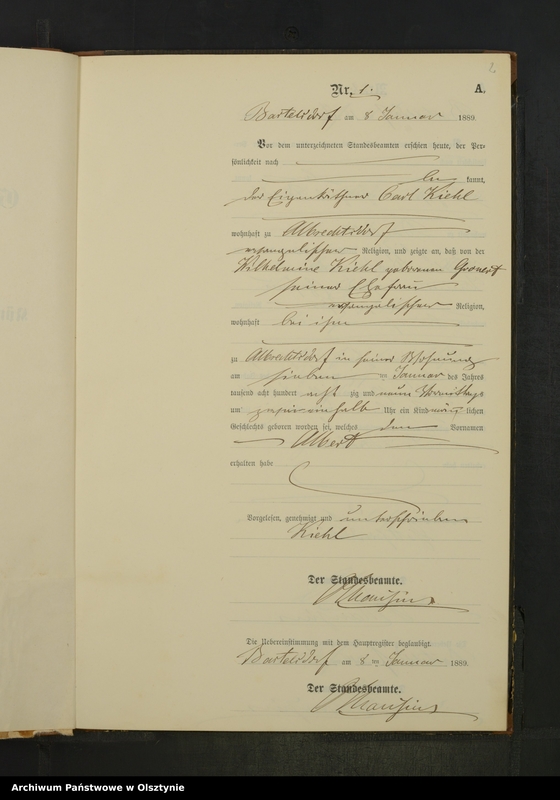 2
Nr. 1. A.
Bartelsdorf am 8 Januar 1889.
Vor dem unterzeichneten Standesbeamten erschien heute, der Per-
sönlichkeit nach
be kannt,
der Eigenkäthner Carl Kiehl
wohnhaft zu Albrechtsdorf
evangelischer Religion, und zeigte an, daß von der
Wilhelmine Kiehl geborenen Gronert
seiner Ehefrau
evangelischer Religion,
wohnhaft bei ihm
zu Albrechtsdorf in seiner Wohnung
am sieben ten Januar des Jahres
tausend acht hundert acht zig und neun Vormittags
um zwei einhalb Uhr ein Kind männ lichen
Geschlechts geboren worden sei, welches den Vornamen
Albert
erhalten habe
Vorgelesen, genehmigt und unterschrieben
Kiehl
Der Standesbeamte.
Die Uebereinstimmung mit dem Hauptregister beglaubigt.
Bartelsdorf am 8 ten Januar 1889.
Der Standesbeamte.
Archiwum Państwowe w Olsztynie